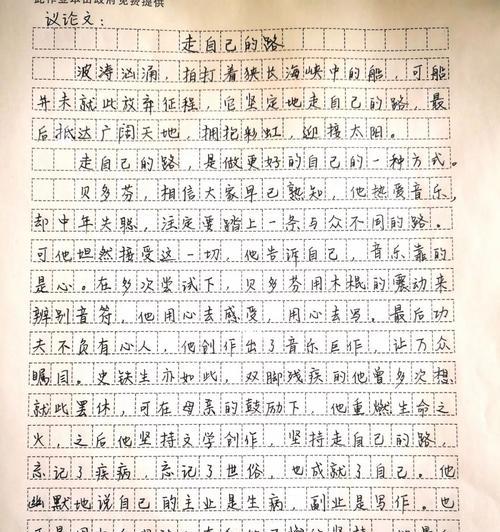 议论文：
走自己的路
波涛汹涌，拍打着狭长海峡中的船，可船
并未就此放弃征程，它坚定地走自己的路，最
后抵达广阔天地，拥抱彩虹，迎接太阳。
走自己的路，是做更好的自己的一种方式。
贝多芬，相信大家早已熟知，他热爱音乐，
却中年失聪，注定要踏上一条与众不同的路。
可他坦然接受这一切，他告诉自己，音乐靠的
是心。在多次尝试下，贝多芬用木棍的震动来
辨别音符，他用心去感受，用心去写。最后功
夫不负有心人，他创作出了音乐巨作，让万众
瞩目。史铁生亦如此，双脚残疾的他曾多次想
就此罢休，可在母亲的鼓励下，他重燃生命之
火，之后他坚持文学创作，坚持走自己的路，
忘记了疾病，忘记了世俗，也成就了自己。他
幽默地说自己的主业是生病，副业是写作。也